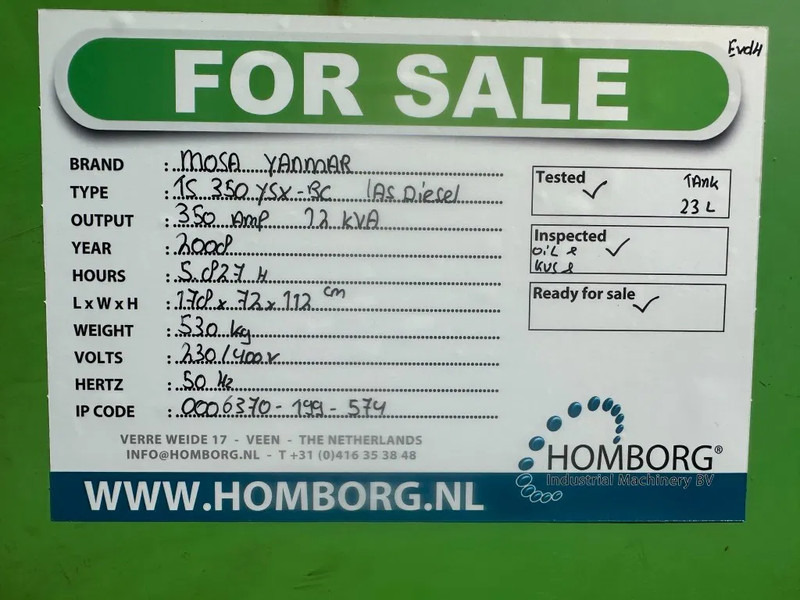 EvdH
FOR SALE
BRAND : MOSA YANMAR
TYPE : TS 350 YSX-BC LAS Diesel
OUTPUT : 350 Amp 12 kVA
YEAR : 2008
HOURS : 5.827 H
L x W x H : 178 x 72 x 112 cm
WEIGHT : 530 kg
VOLTS : 230/400V
HERTZ : 50 Hz
IP CODE : 0006370-199-574
Tested ✓ TANK
23 L
Inspected ✓
OiL
Ready for sale ✓
VERRE WEIDE 17 - VEEN - THE NETHERLANDS
INFO@HOMBORG.NL - T +31 (0)416 35 38 48
HOMBORG®
Industrial Machinery BV
WWW.HOMBORG.NL